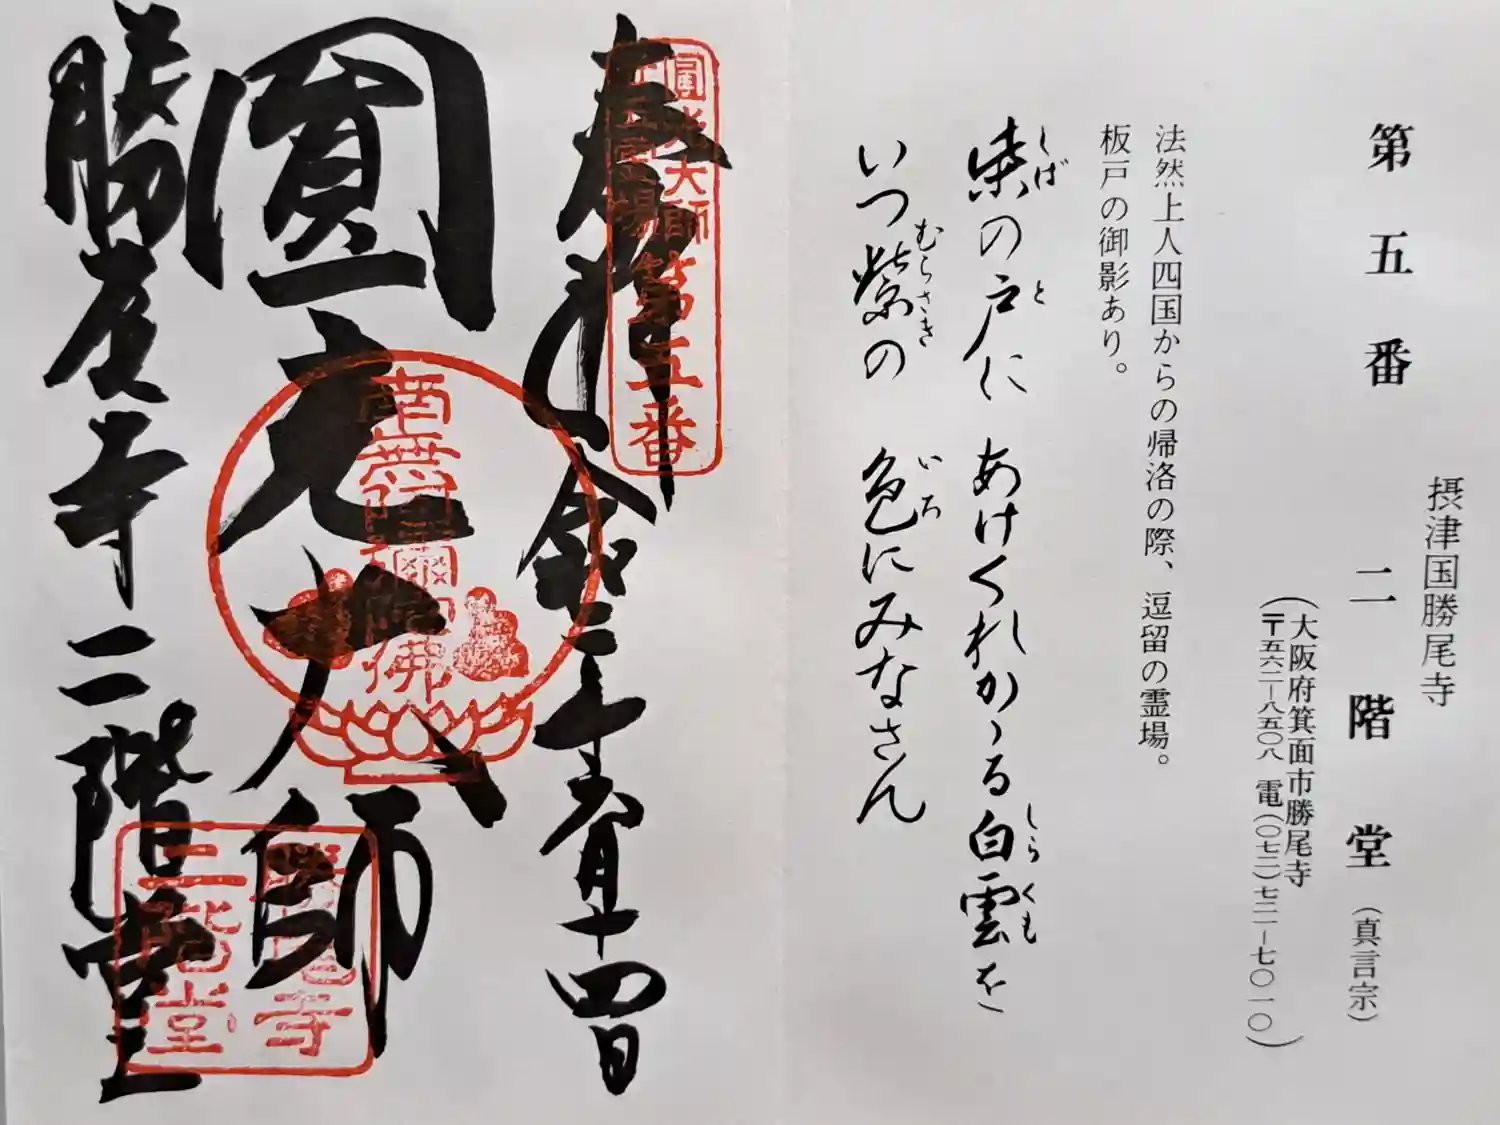 摂津国勝尾寺
第五番 二階堂(真言宗)
(大阪府箕面市勝尾寺
〒五六二-八五〇八 電(〇七二)七二一-七〇一〇)
法然上人四国からの帰洛の際、逗留の霊場。
板戸の御影あり。
柴の戸に あけくれかゝる白雲を
しば と しらくも
いつ紫の 色にみなさん
むらさき いろ
圓光大師
第五番
奉拝 令和三年 月十四日
圓光大師
南無阿彌陀佛
勝尾寺二階堂
勝尾寺
二階堂